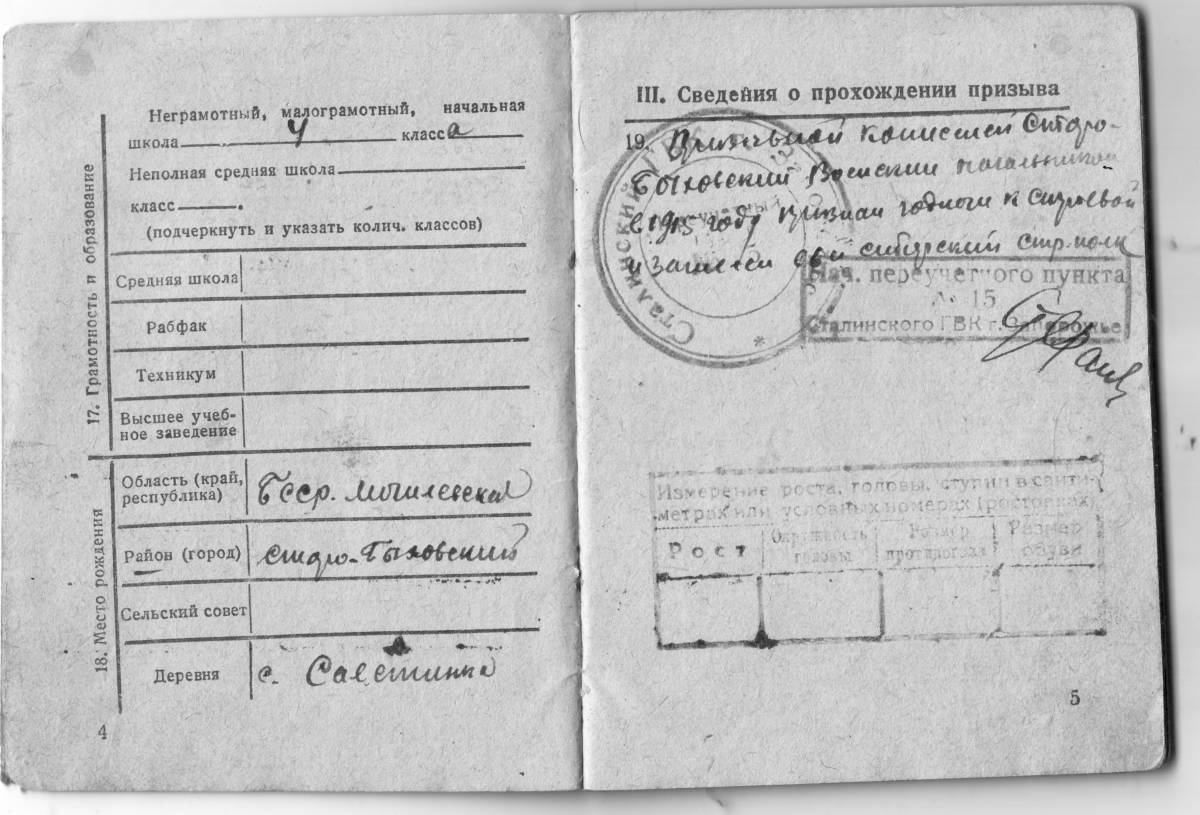 17. Грамотность и образование
Неграмотный, малограмотный, начальная
школа 4 класса
Неполная средняя школа
класс .
(подчеркнуть и указать колич. классов)
Средняя школа
Рабфак
Техникум
Высшее учеб-
ное заведение
18. Место рождения
Область (край,
республика) БССР. Могилевская
Район (город) Старо-Быховский
Сельский совет
Деревня с.
4
III. Сведения о прохождении призыва
19. Призывной комиссией Старо-
Быховский Воинский начальником
в 1915 году признан годным к строевой
и зачислен сибирский стр. полк
Сталинский
Нач. переучетного пункта
№ 15
Сталинского ГВК г. Запорожье
Измерение роста, головы, ступни в санти-
метрах или условных номерах (ростовках)
Рост
Окружность
головы
Размер
противогаза
Размер
обуви
5